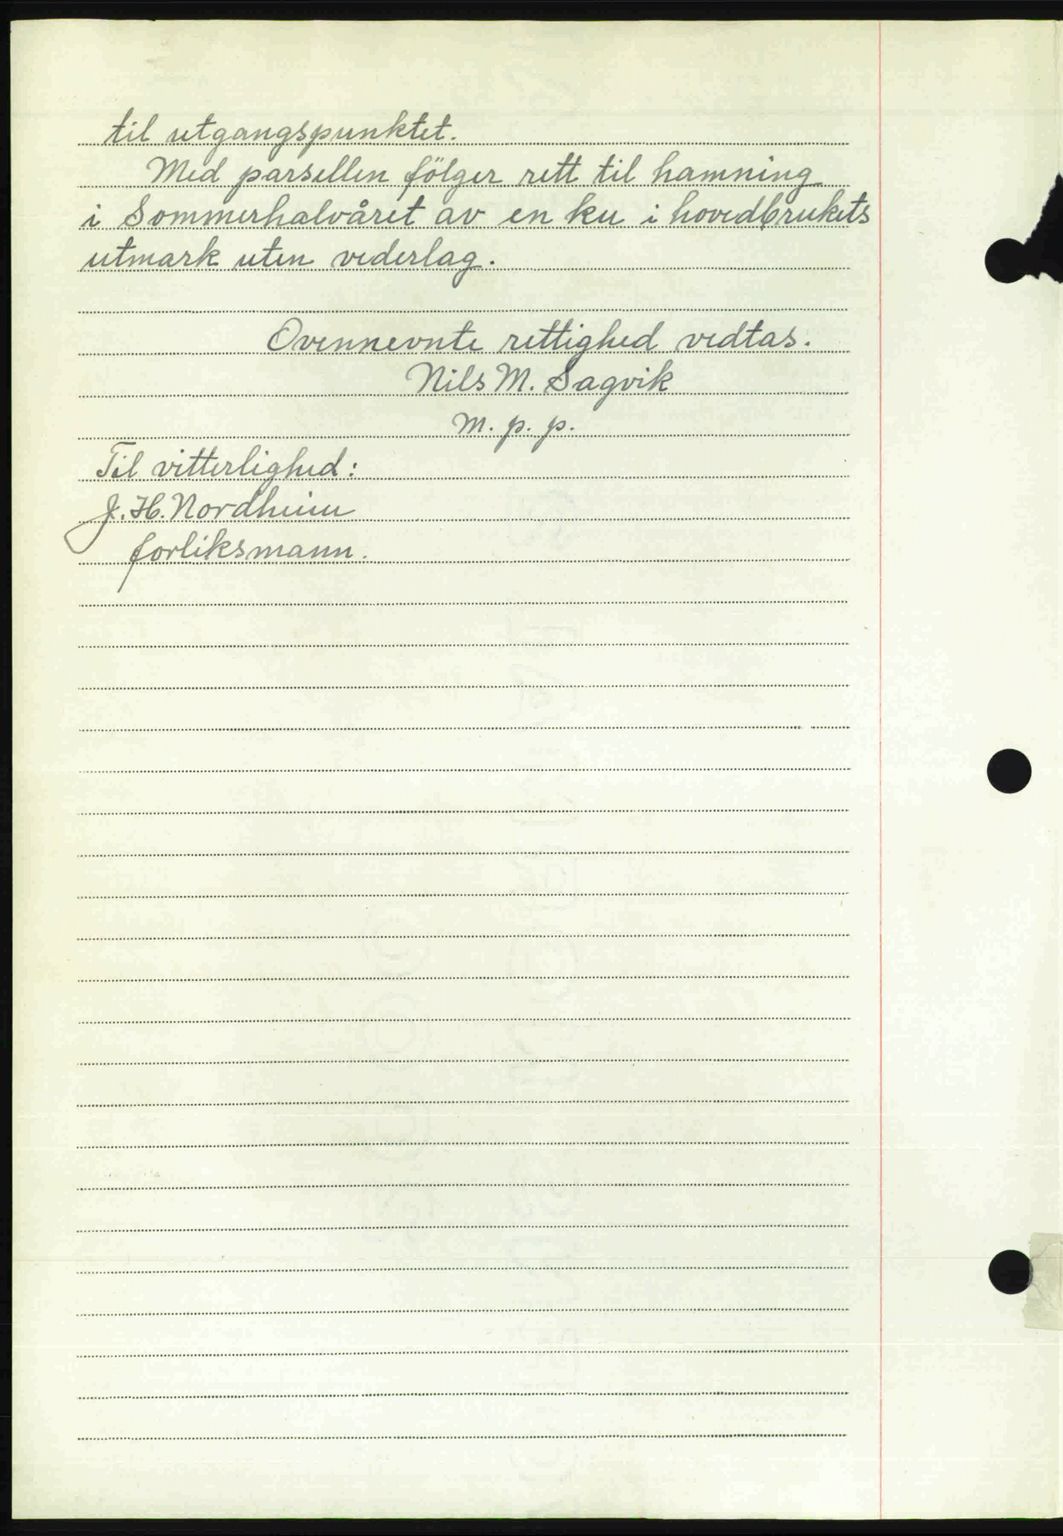 til utgangspunktet.
Med parsellen fölger rett til hamning
i Sommerhalvåret av en ku i hovedbrukets
utmark uten vederlag.
Ovennevnte rettighed vedtas.
Nils M. Sagvik
m. p. p.
Til vitterlighed:
J. H. Nordheim
forliksmann.